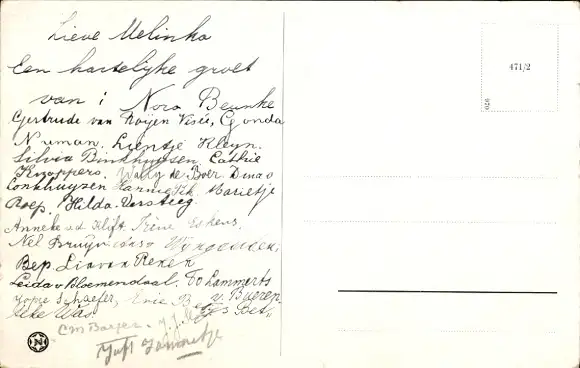 Lieve Melinka
Een hartelijke groet
van: Nora Beunke
Gertrude van Rooijen Visée, Gonda
Numan. Lientje Kleyn.
Silvia Dinkhuysen Cathrie
Knoppers. Willy de Boer Dina v
Lonkhuyzen Hannie Marietje
Roep. Hilda Versteeg.
Anneke v.d. Klift Irène Eskens.
Nel Bruyn
Bep. Lia van Renen
Leida v Bloemendaal. To Lammerts
Schaefer, v. Bueren
Bets
CM Barger.
Juf Jannetje
471/2
N